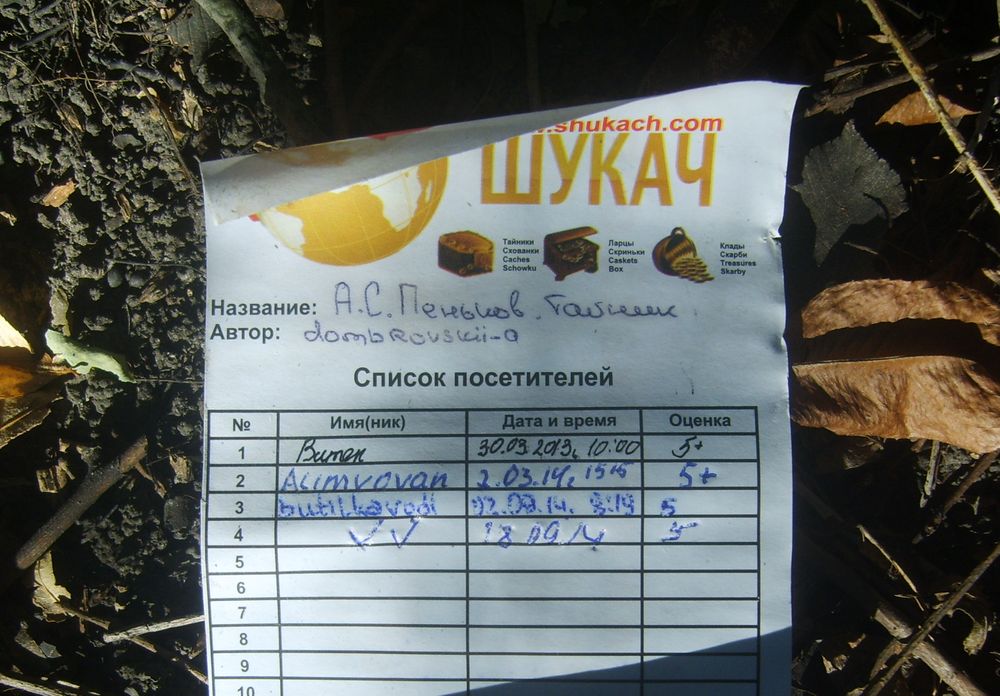 www.shukach.com
ШУКАЧ
Тайники Ларцы Клады
Схованки Скриньки Скарби
Caches Caskets Treasures
Schowku Box Skarby
Название: А.С. Пеньков. Тайник
Автор: dombrovskii-a
Список посетителей
№ Имя(ник) Дата и время Оценка
1 Витек 30.03.2013, 10:00 5+
2 2.03.14, 15 5+
3 butilkavodi .14. 5
4 VV 18 09 14 5
5
6
7
8
9
10